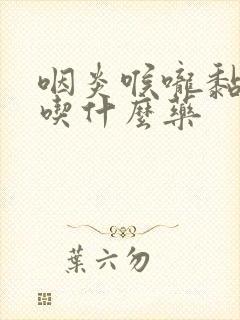 咽炎喉嚨黏
喫什麼藥
葉六勿